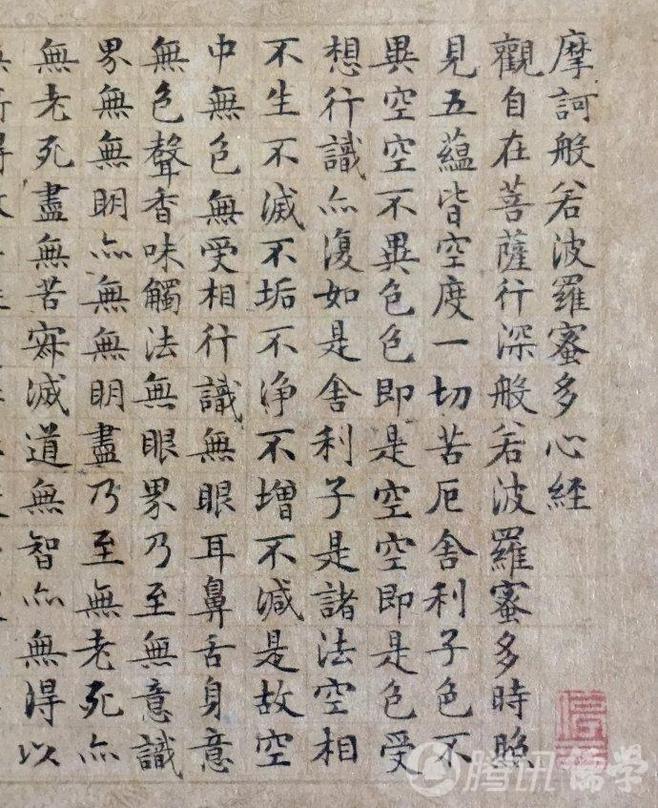 摩訶般若波羅蜜多心経
觀自在菩薩行深般若波羅蜜多時照
見五蘊皆空度一切苦厄舍利子色不
異空空不異色色即是空空即是色受
想行識亦復如是舍利子是諸法空相
不生不滅不垢不淨不增不減是故空
中無色無受相行識無眼耳鼻舌身意
無色聲香味觸法無眼界乃至無意識
界無無明亦無無明盡乃至無老死亦
無老死盡無苦寂滅道無智亦無得以
腾讯儒学